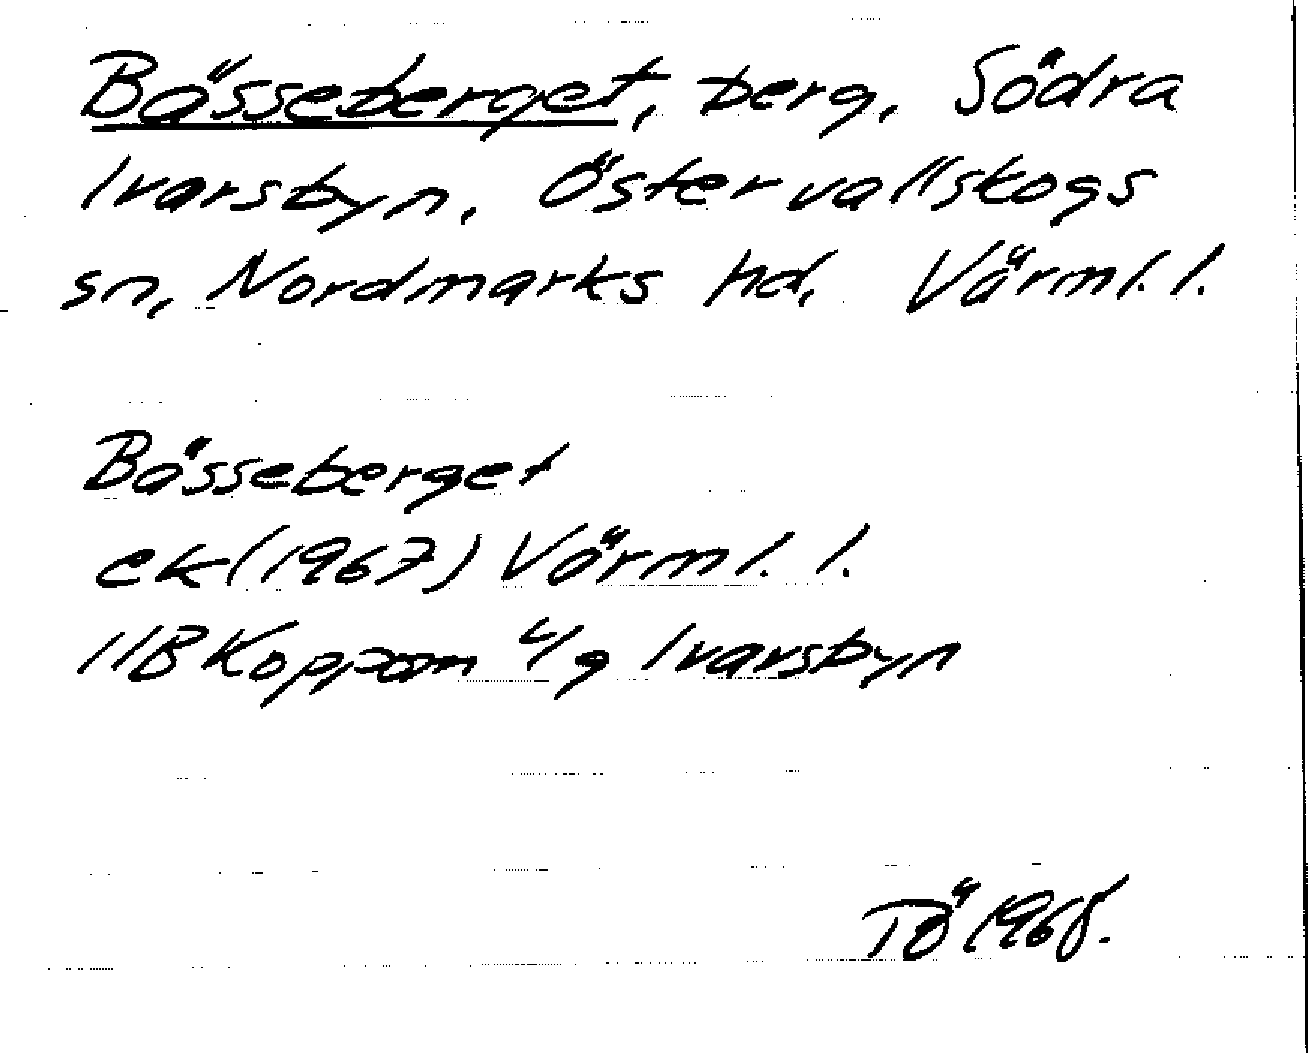 Bässeberget, berg, Södra
Ivarsbyn, Östervallskogs
sn, Nordmarks hd, Värml. l.
Bässeberget
ek (1967) Värml. l.
11B Koppom 4/g Ivarsbyn
TÖ 1968.